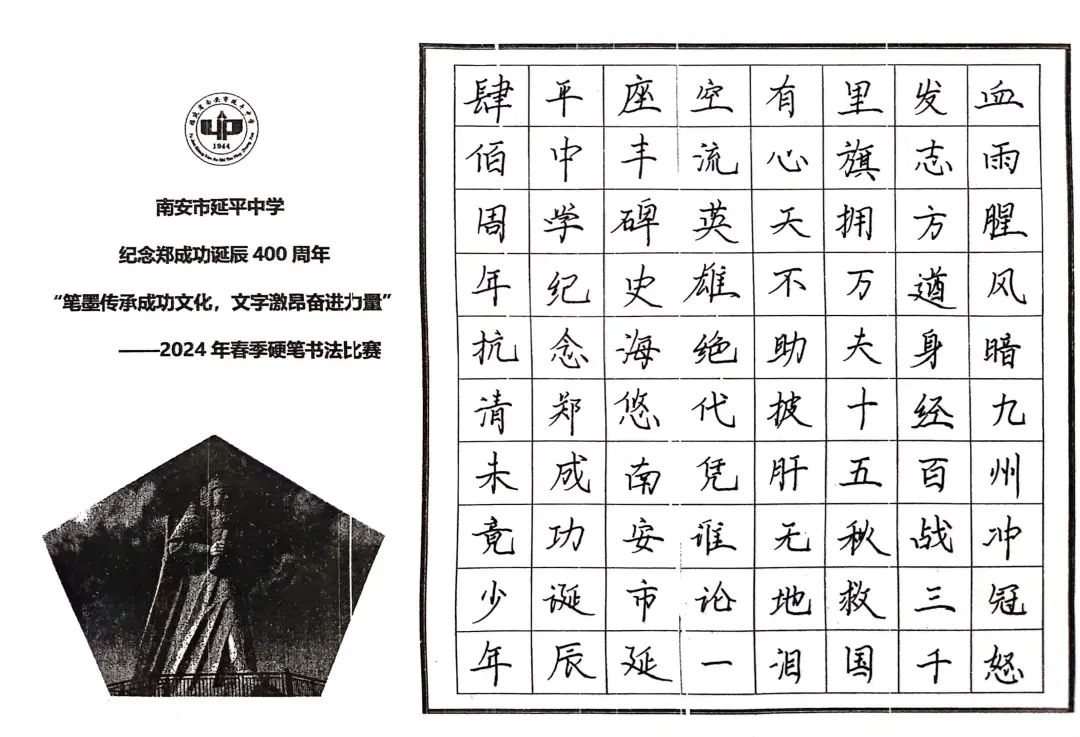 1944
南安市延平中学
纪念郑成功诞辰 400 周年
“笔墨传承成功文化，文字激昂奋进力量”
——2024 年春季硬笔书法比赛
血雨腥风暗九州冲冠怒
发志方遒身经百战三千
里旗拥万夫十五秋救国
有心天不助披肝无地泪
空流英雄绝代凭谁论一
座丰碑史海悠南安市延
平中学纪念郑成功诞辰
肆佰周年抗清未竟少年